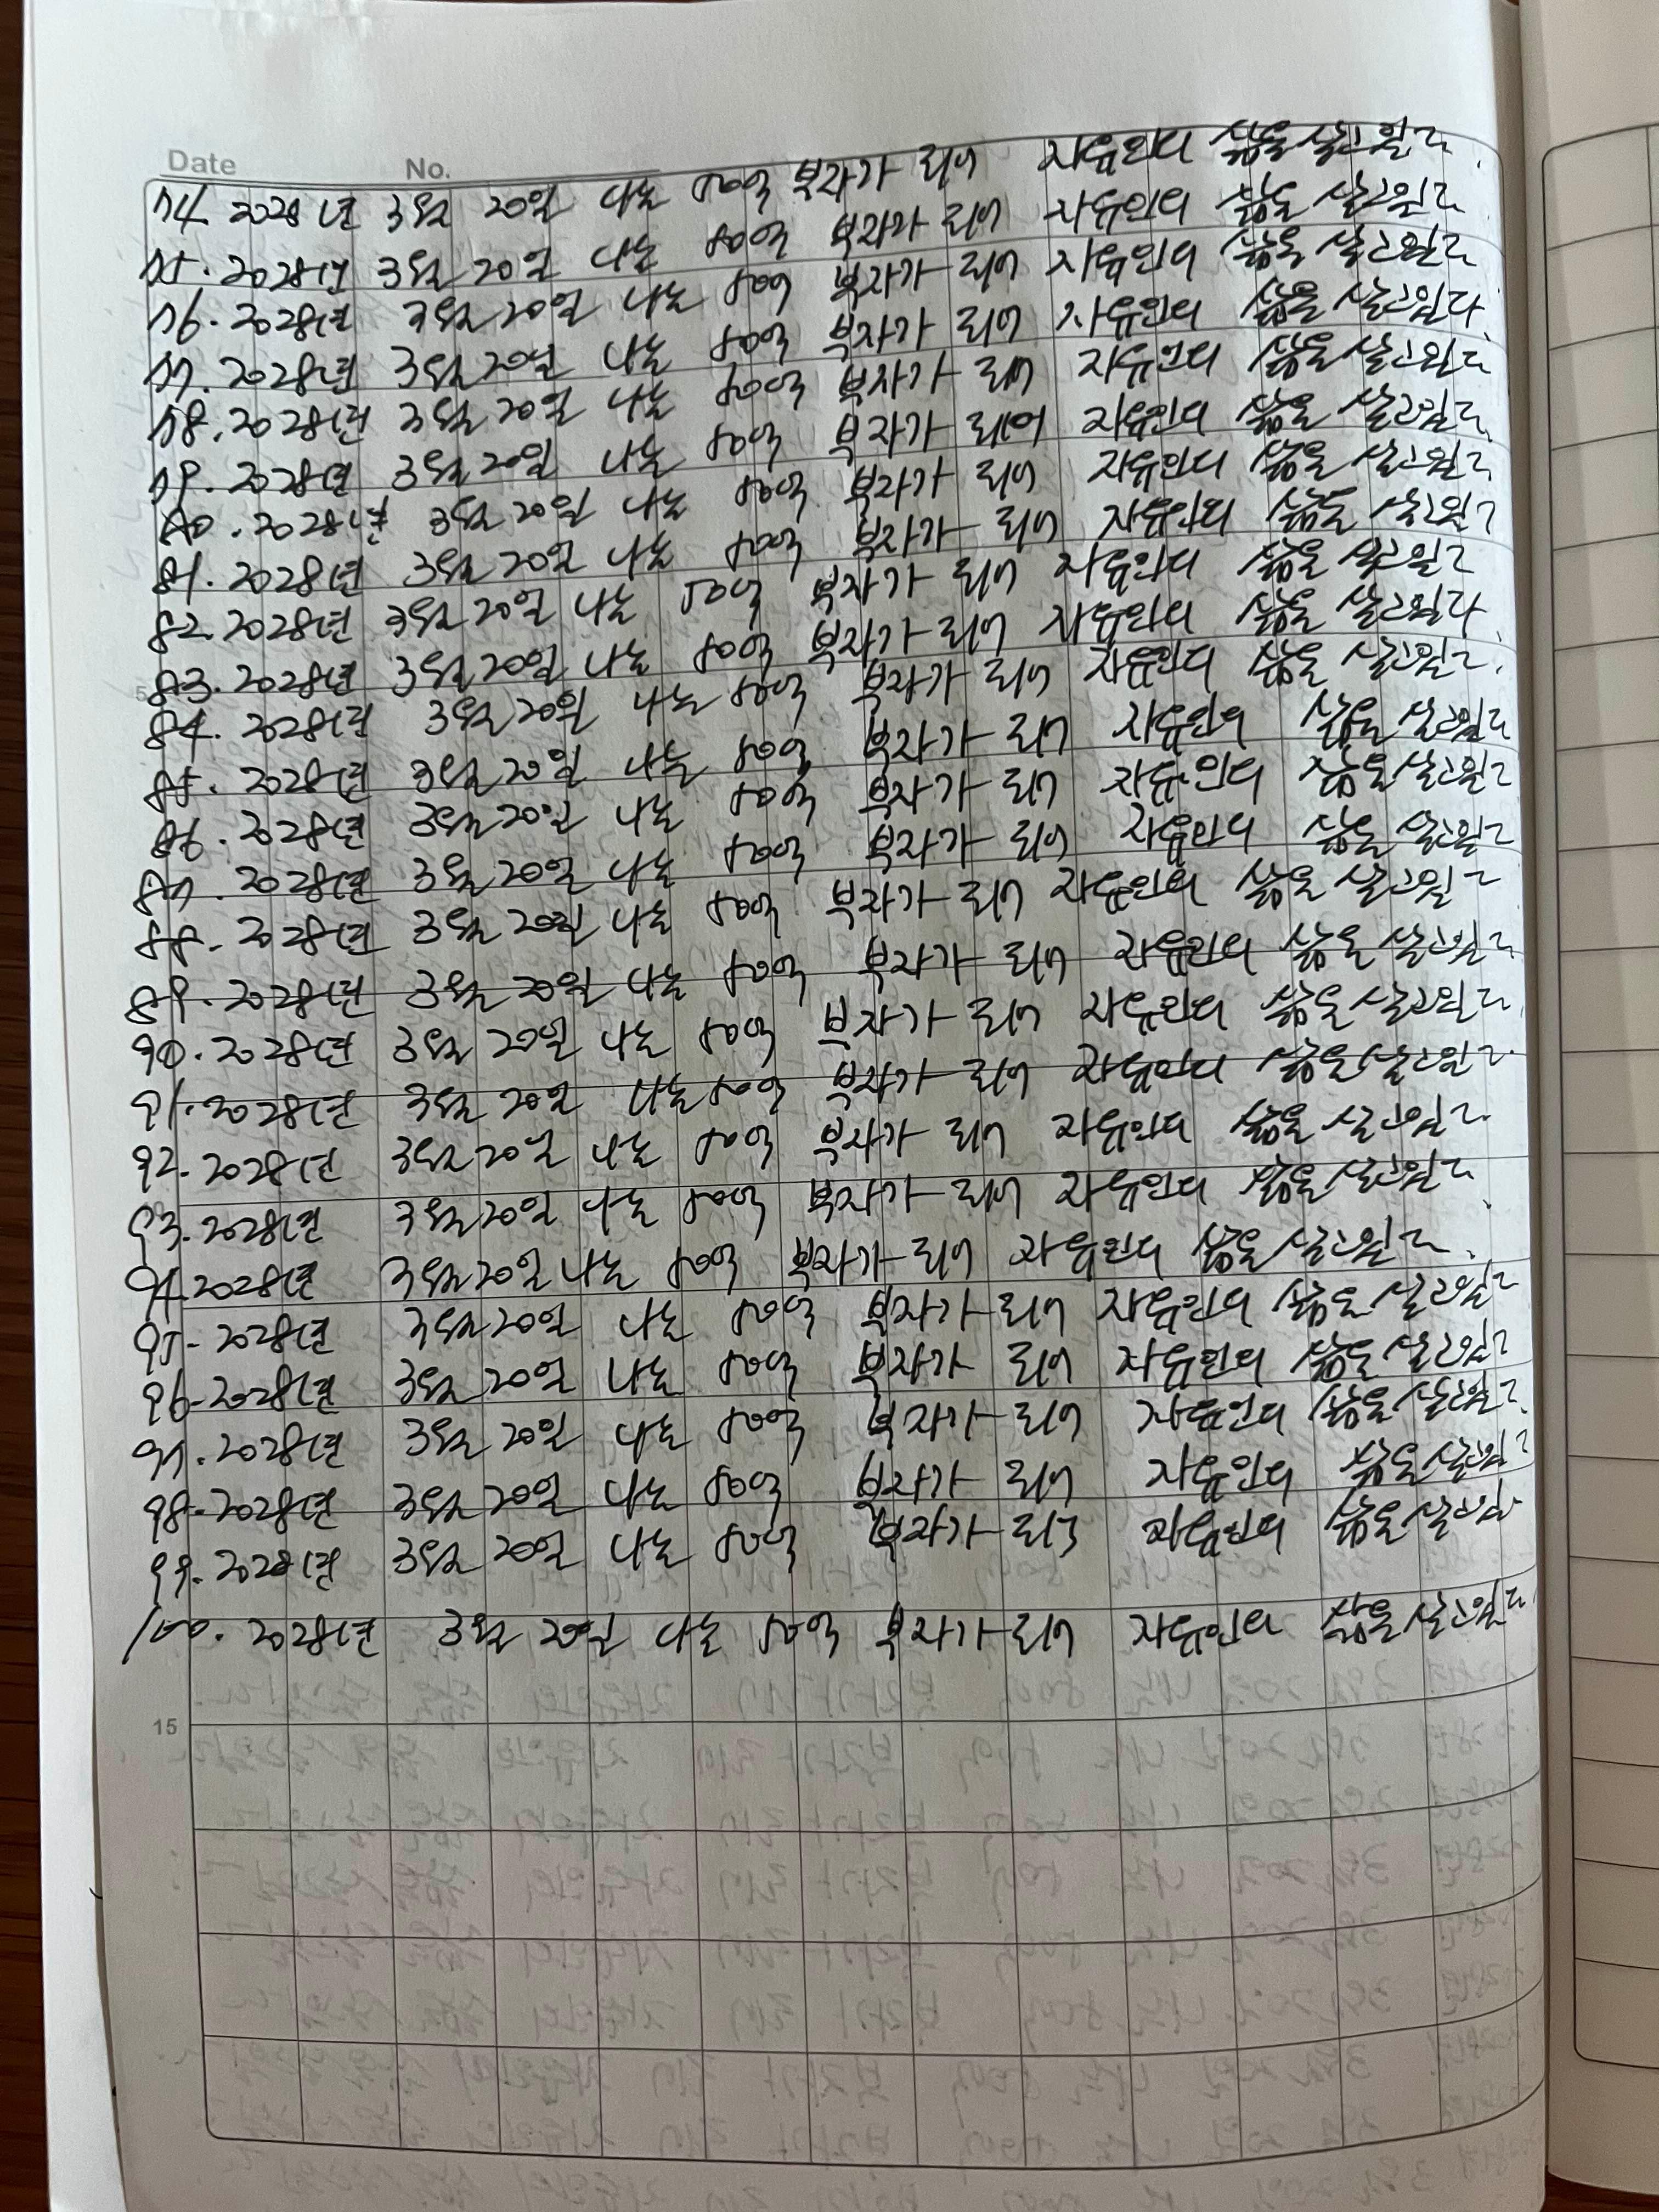 Date No.
74. 2028년 3월 20일 나는 50억 부자가 되어 자유인의 삶을 살고있다.
75. 2028년 3월 20일 나는 50억 부자가 되어 자유인의 삶을 살고있다
76. 2028년 3월 20일 나는 50억 부자가 되어 자유인의 삶을 살고있다
77. 2028년 3월 20일 나는 50억 부자가 되어 자유인의 삶을 살고있다.
78. 2028년 3월 20일 나는 50억 부자가 되어 자유인의 삶을 살고있다
79. 2028년 3월 20일 나는 50억 부자가 되어 자유인의 삶을 살고있다.
80. 2028년 3월 20일 나는 50억 부자가 되어 자유인의 삶을 살고있다
81. 2028년 3월 20일 나는 50억 부자가 되어 자유인의 삶을 살고있다
82. 2028년 3월 20일 나는 50억 부자가 되어 자유인의 삶을 살고있다
83. 2028년 3월 20일 나는 50억 부자가 되어 자유인의 삶을 살고있다.
84. 2028년 3월 20일 나는 50억 부자가 되어 자유인의 삶을 살고있다.
85. 2028년 3월 20일 나는 50억 부자가 되어 자유인의 삶을 살고있다
86. 2028년 3월 20일 나는 50억 부자가 되어 자유인의 삶을 살고있다
87. 2028년 3월 20일 나는 50억 부자가 되어 자유인의 삶을 살고있다
88. 2028년 3월 20일 나는 50억 부자가 되어 자유인의 삶을 살고있다
89. 2028년 3월 20일 나는 50억 부자가 되어 자유인의 삶을 살고있다
90. 2028년 3월 20일 나는 50억 부자가 되어 자유인의 삶을 살고있다.
91. 2028년 3월 20일 나는 50억 부자가 되어 자유인의 삶을 살고있다.
92. 2028년 3월 20일 나는 50억 부자가 되어 자유인의 삶을 살고있다.
93. 2028년 3월 20일 나는 50억 부자가 되어 자유인의 삶을 살고있다.
94. 2028년 3월 20일 나는 50억 부자가 되어 자유인의 삶을 살고있다.
95. 2028년 3월 20일 나는 50억 부자가 되어 자유인의 삶을 살고있다
96. 2028년 3월 20일 나는 50억 부자가 되어 자유인의 삶을 살고있다
97. 2028년 3월 20일 나는 50억 부자가 되어 자유인의 삶을 살고있다.
98. 2028년 3월 20일 나는 50억 부자가 되어 자유인의 삶을 살고있다
99. 2028년 3월 20일 나는 50억 부자가 되어 자유인의 삶을 살고있다
100. 2028년 3월 20일 나는 50억 부자가 되어 자유인의 삶을 살고있다.
15